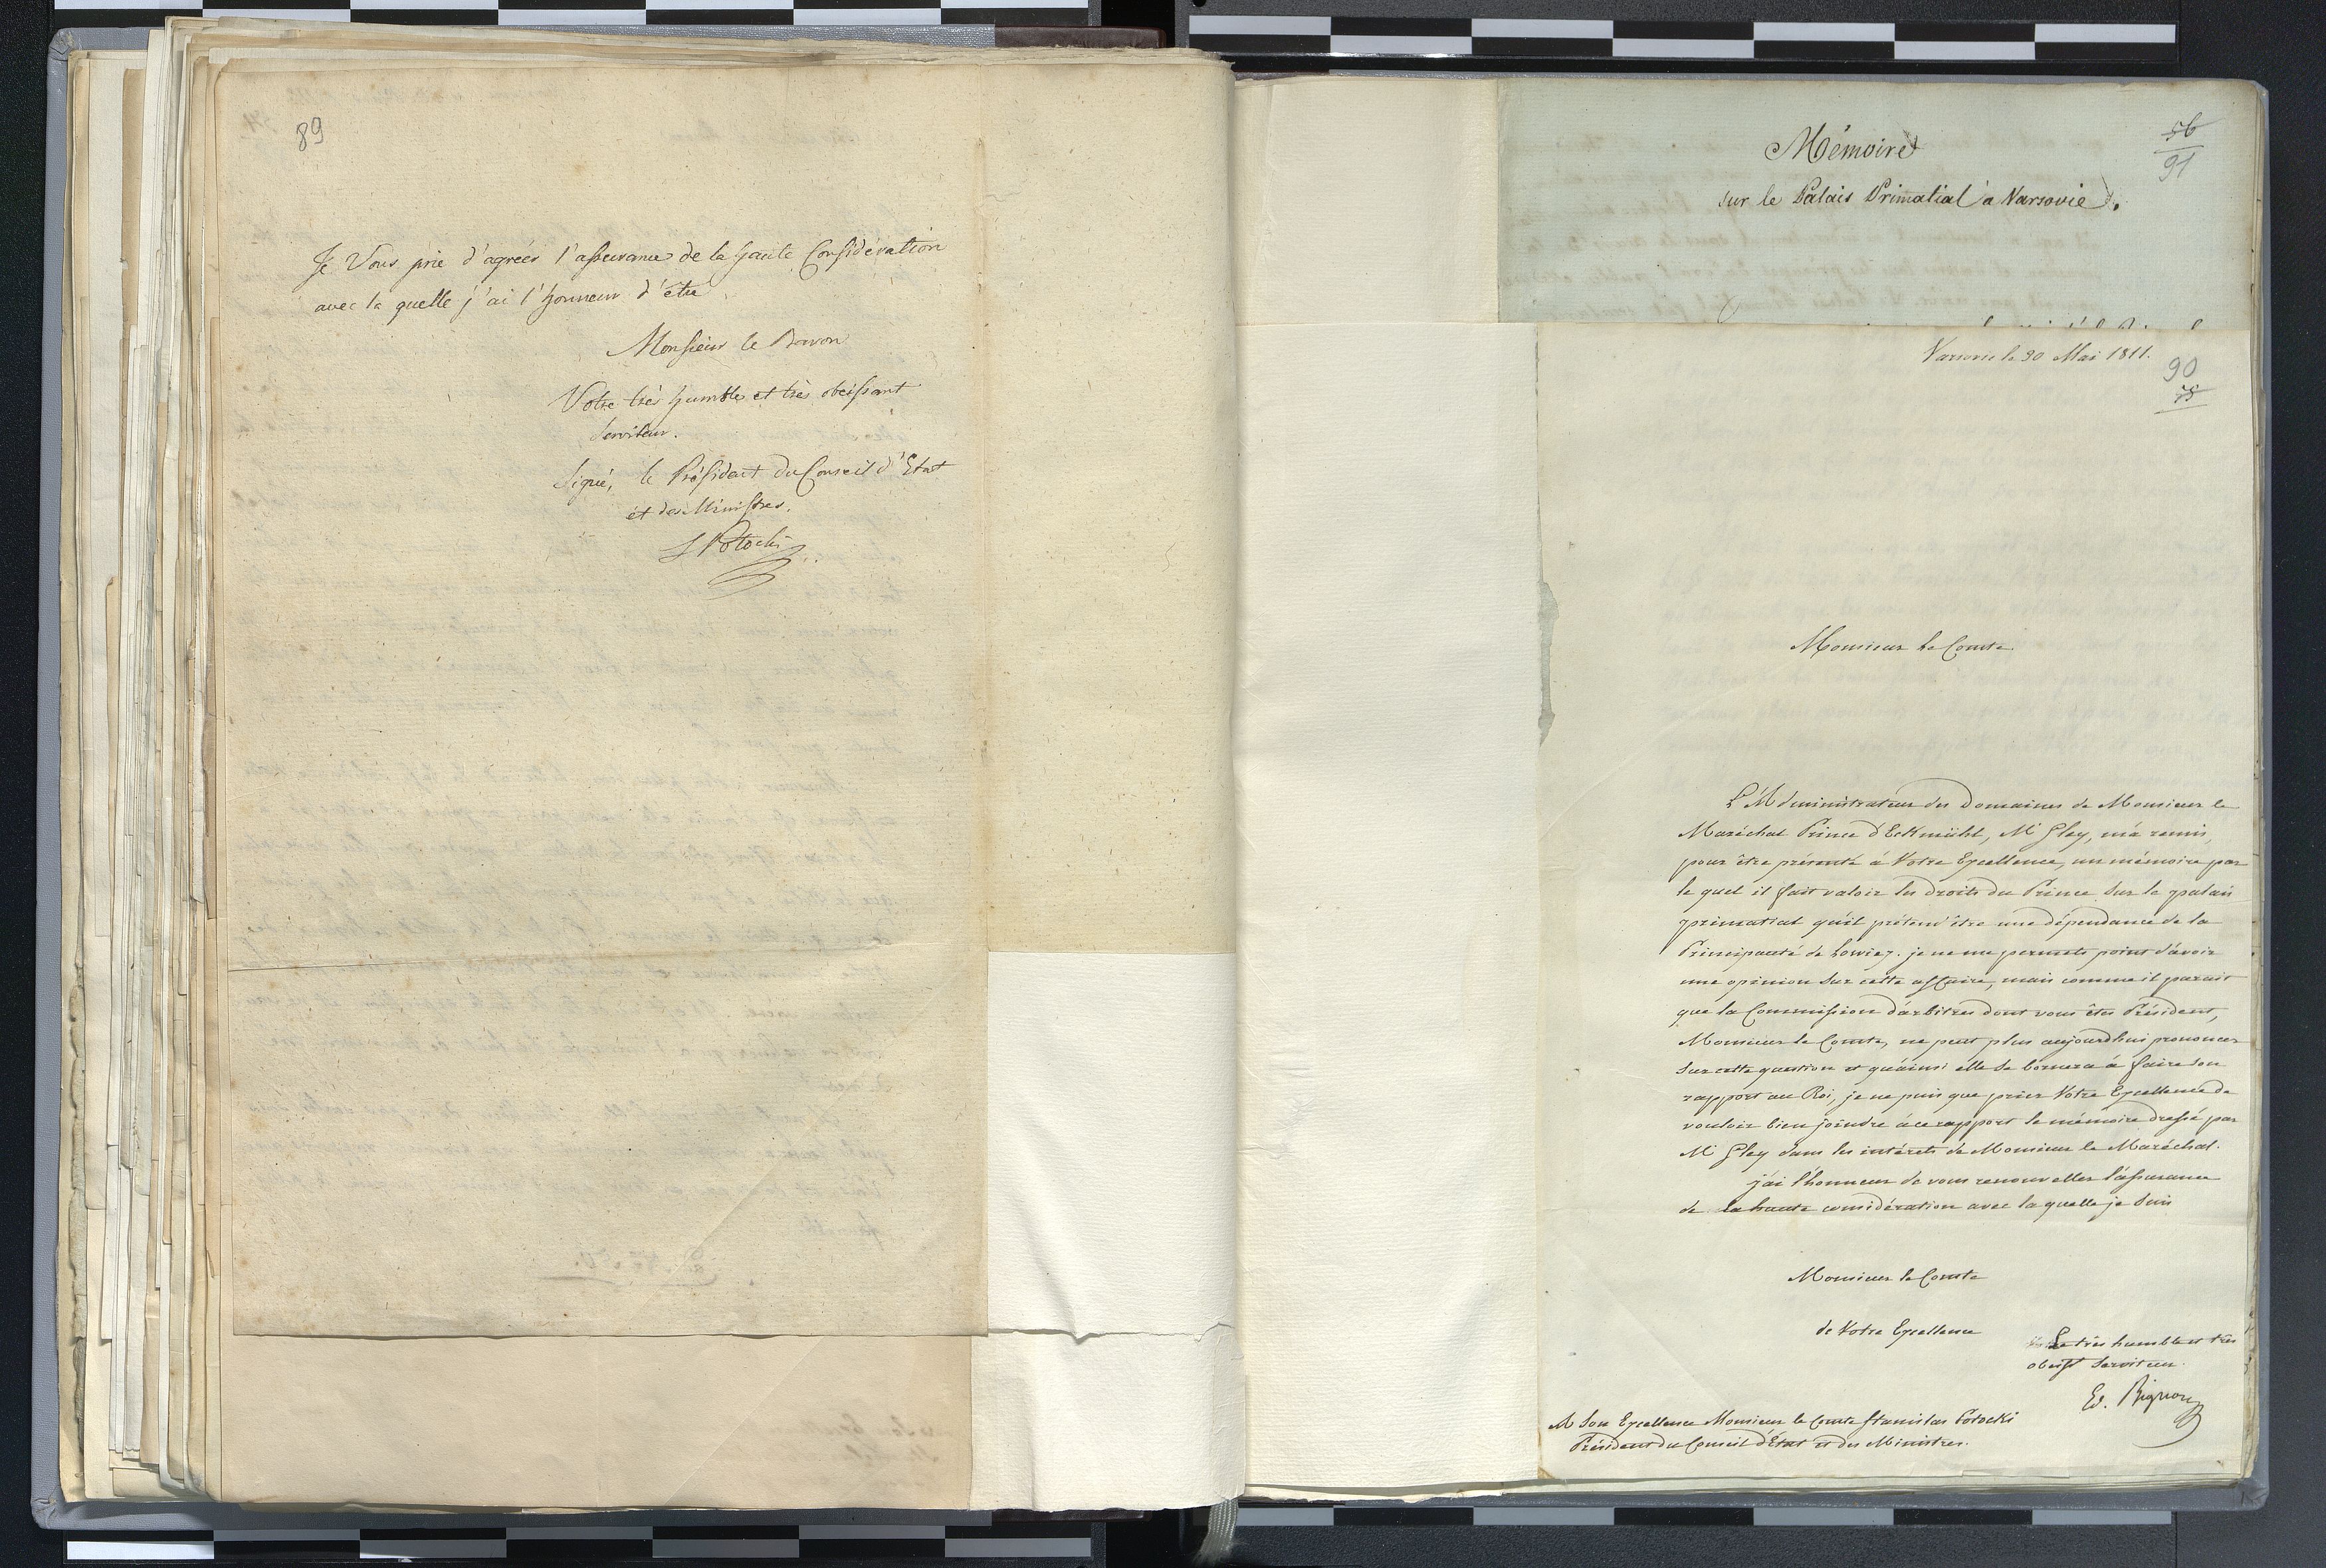 89
Je Vous prie d'agréer l'assurance de la haute Considération
avec la quelle j'ai l'honneur d'être
Monsieur le Baron
Votre très humble et très obéissant
Serviteur.
Signé, le Président du Conseil d'Etat
et des Ministres.
S Potocki
56
91
Mémoire
sur le Palais Primatial à Varsovie.
Varsovie le 30 Mai 1811.
90
Monsieur le Comte
L'Administrateur des Domaines de Monsieur le
Maréchal Prince d'Eckmühl, Mr Gley, m'a remis,
pour être présenté à Votre Excellence, un mémoire par
le quel il fait valoir les droits du Prince sur le palais
primatial qu'il prétend être une dépendance de la
Principauté de Lowicz. je ne me permets point d'avoir
une opinion sur cette affaire, mais comme il parait
que la Commission d'arbitres dont vous êtes Président,
Monsieur le Comte, ne peut plus aujourdhui prononcer
sur cette question et qu'ainsi elle se bornera à faire son
rapport au Roi, je ne puis que prier Votre Excellence de
vouloir bien joindre à ce rapport le mémoire dressé par
Mr Gley dans les intérets de Monsieur le Maréchal.
j'ai l'honneur de vous renouveller l'assurance
de la haute considération avec la quelle je suis
Monsieur le Comte
de Votre Excellence
Le très humble et très
obeisst Serviteur.
Ed. Bignon
A Son Excellence Monsieur le Comte Stanislas Potocki
Président du Conseil d'Etat et des Ministres.